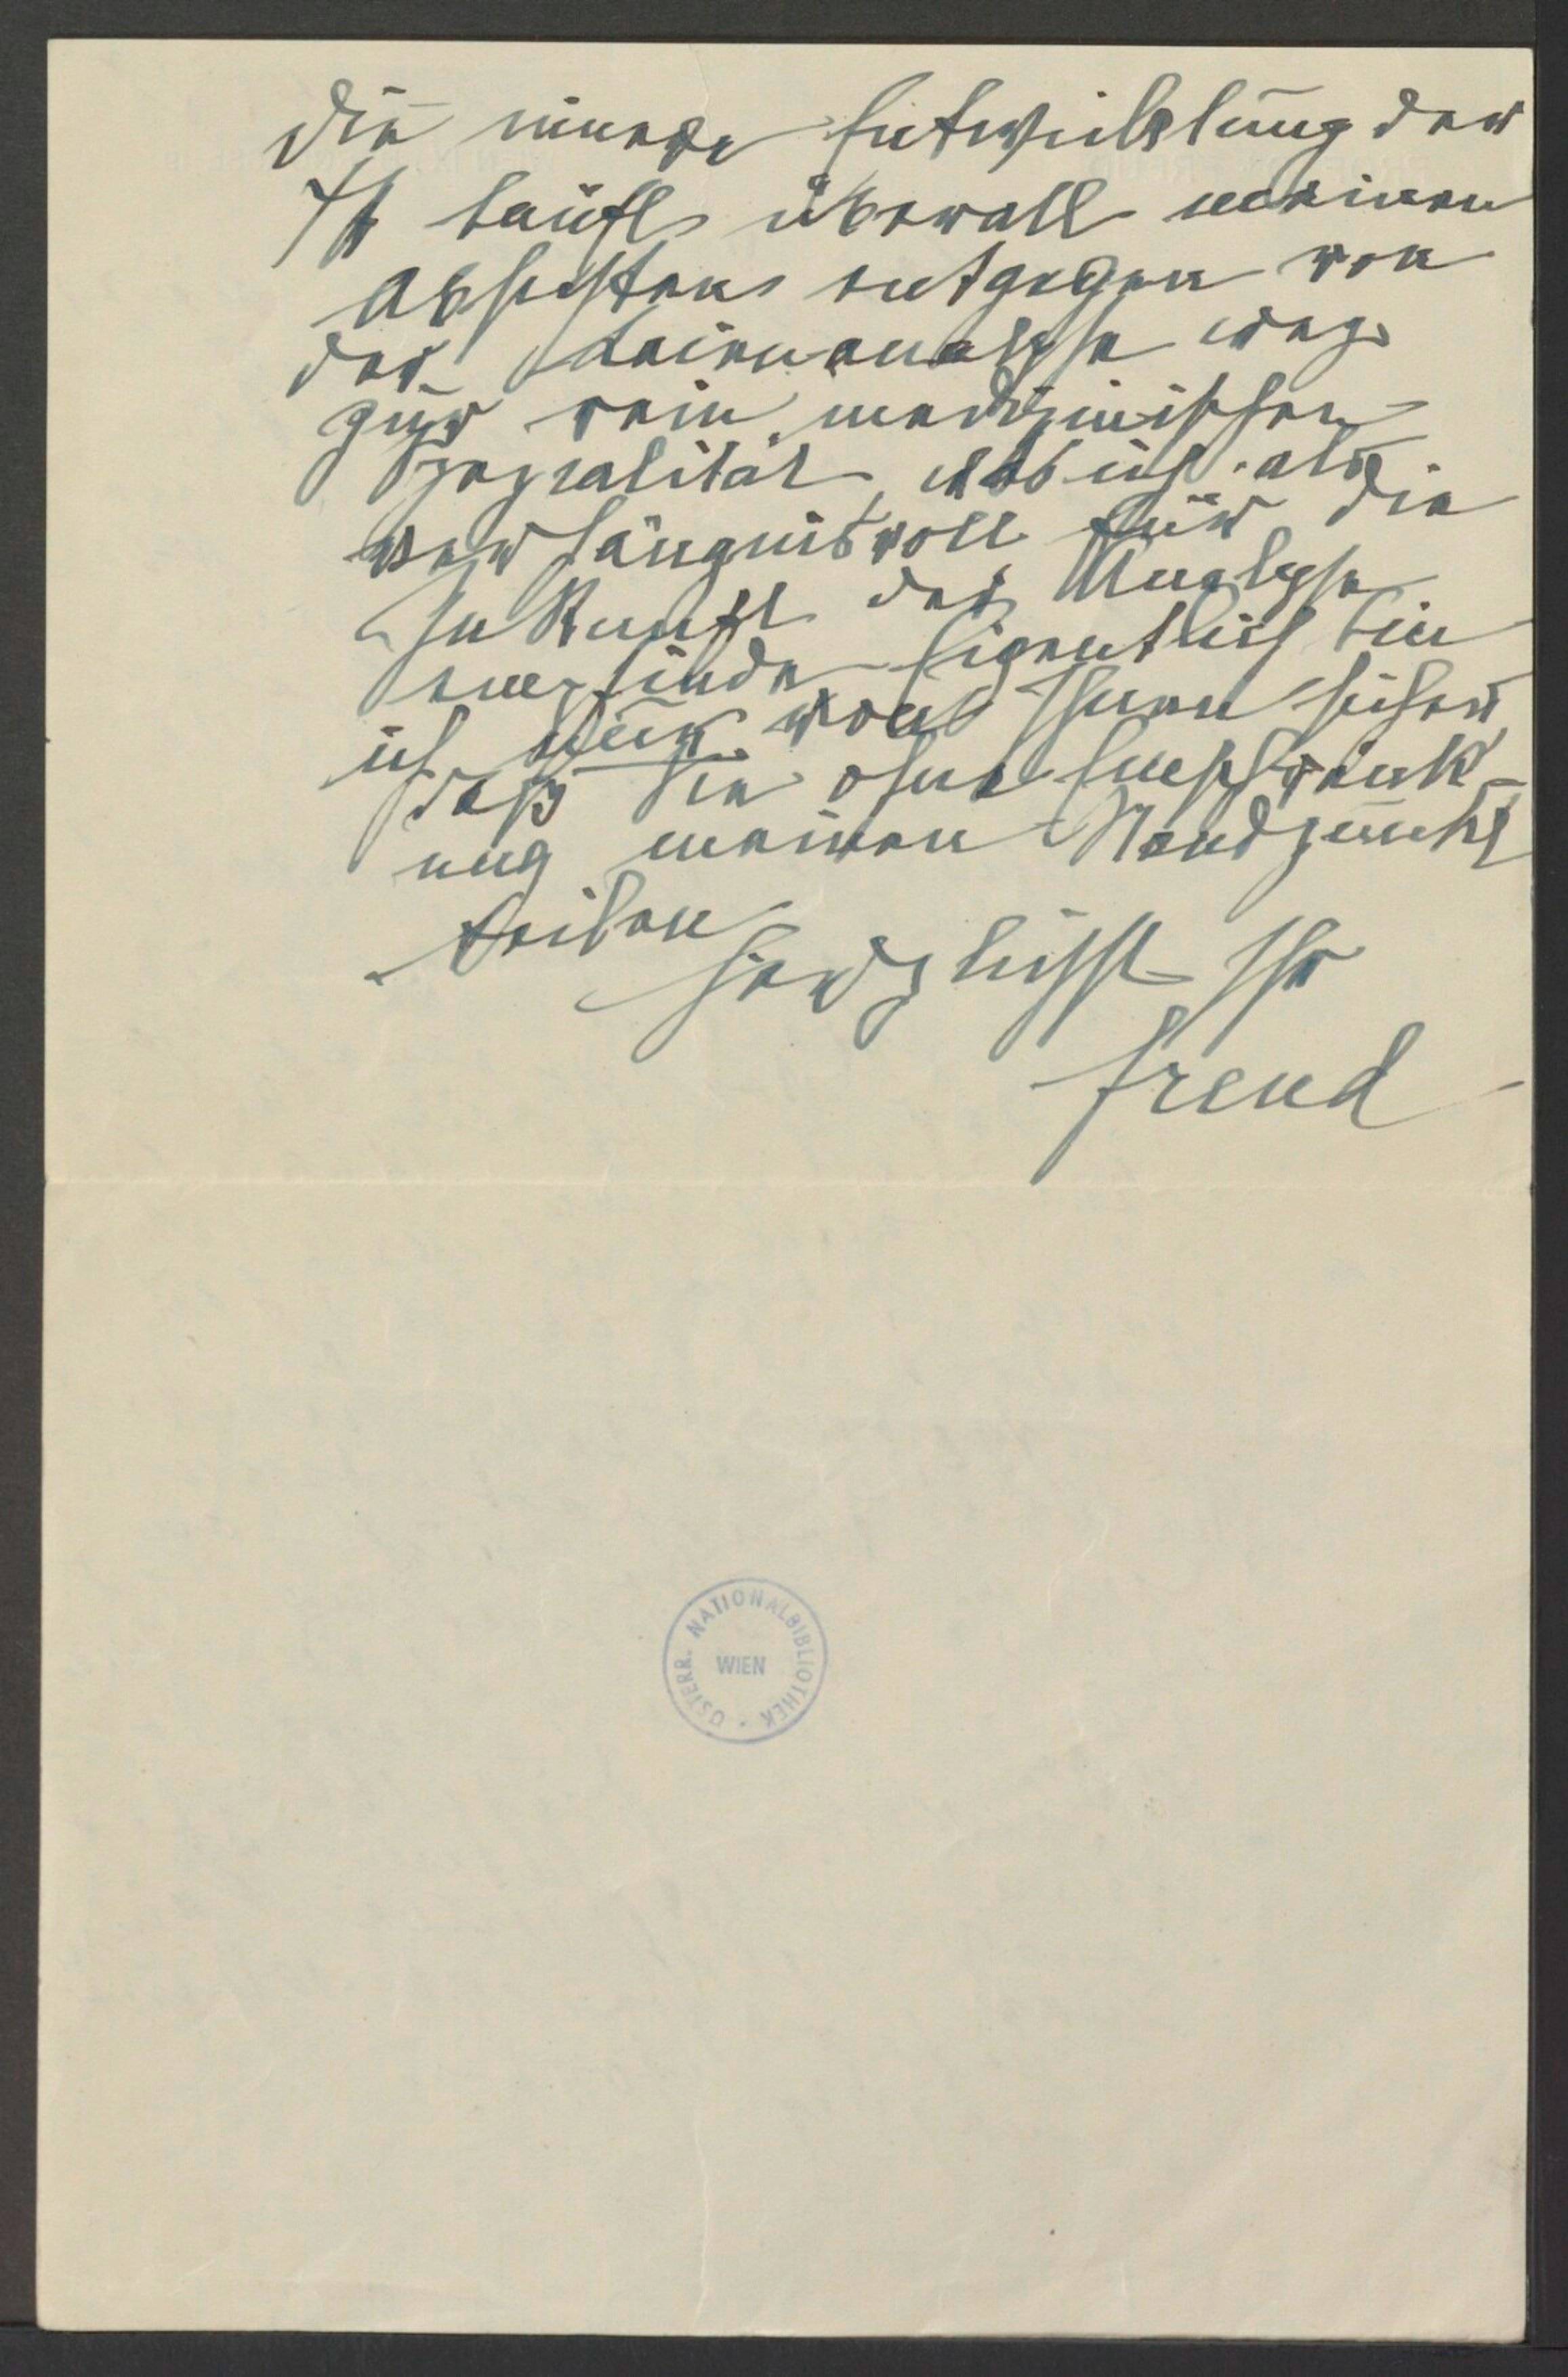 Die innere Entwicklung der
ΨA läuft überall meinen
Absichten entgegen von
der Laienanalyse weg
zur rein medizinischen
Spezialität, was ich als
verhängnisvoll für die
Zukunft der Analyse
empfinde. Eigentlich bin
ich nur von Ihnen sicher,
daß Sie ohne Einschränk-
ung meinen Standpunkt
teilen
Herzlichst Ihr
Freud
ÖSTERR. NATIONALBIBLIOTHEK
WIEN